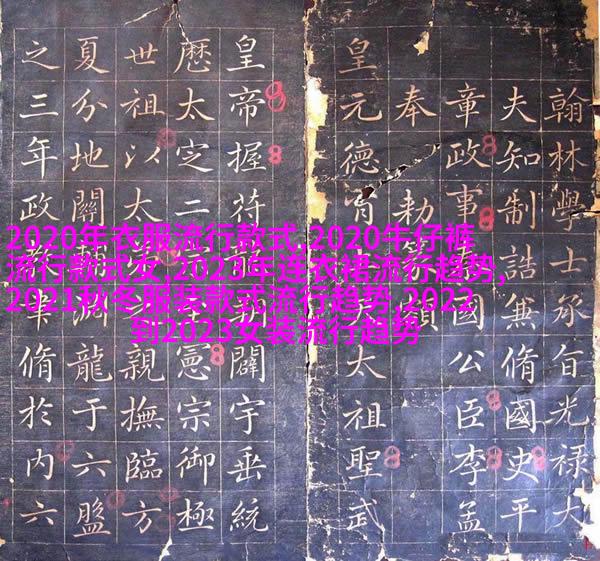 翰林學士承旨光祿大
夫知制誥兼脩國史平
章政事國公臣李孟
奉勅額
皇元德大太祖聖武
皇帝握符闢宇垂統
厯太定二憲宗御極
世祖以太親撫臨方
夏分地關淵龍于六盤
之三年政軍脩於内六
2020年衣服流行款式,2020牛仔裤
流行款式女,2023年连衣裙流行趋势,
2021秋冬服装款式流行趋势,2022
到2023女装流行趋势